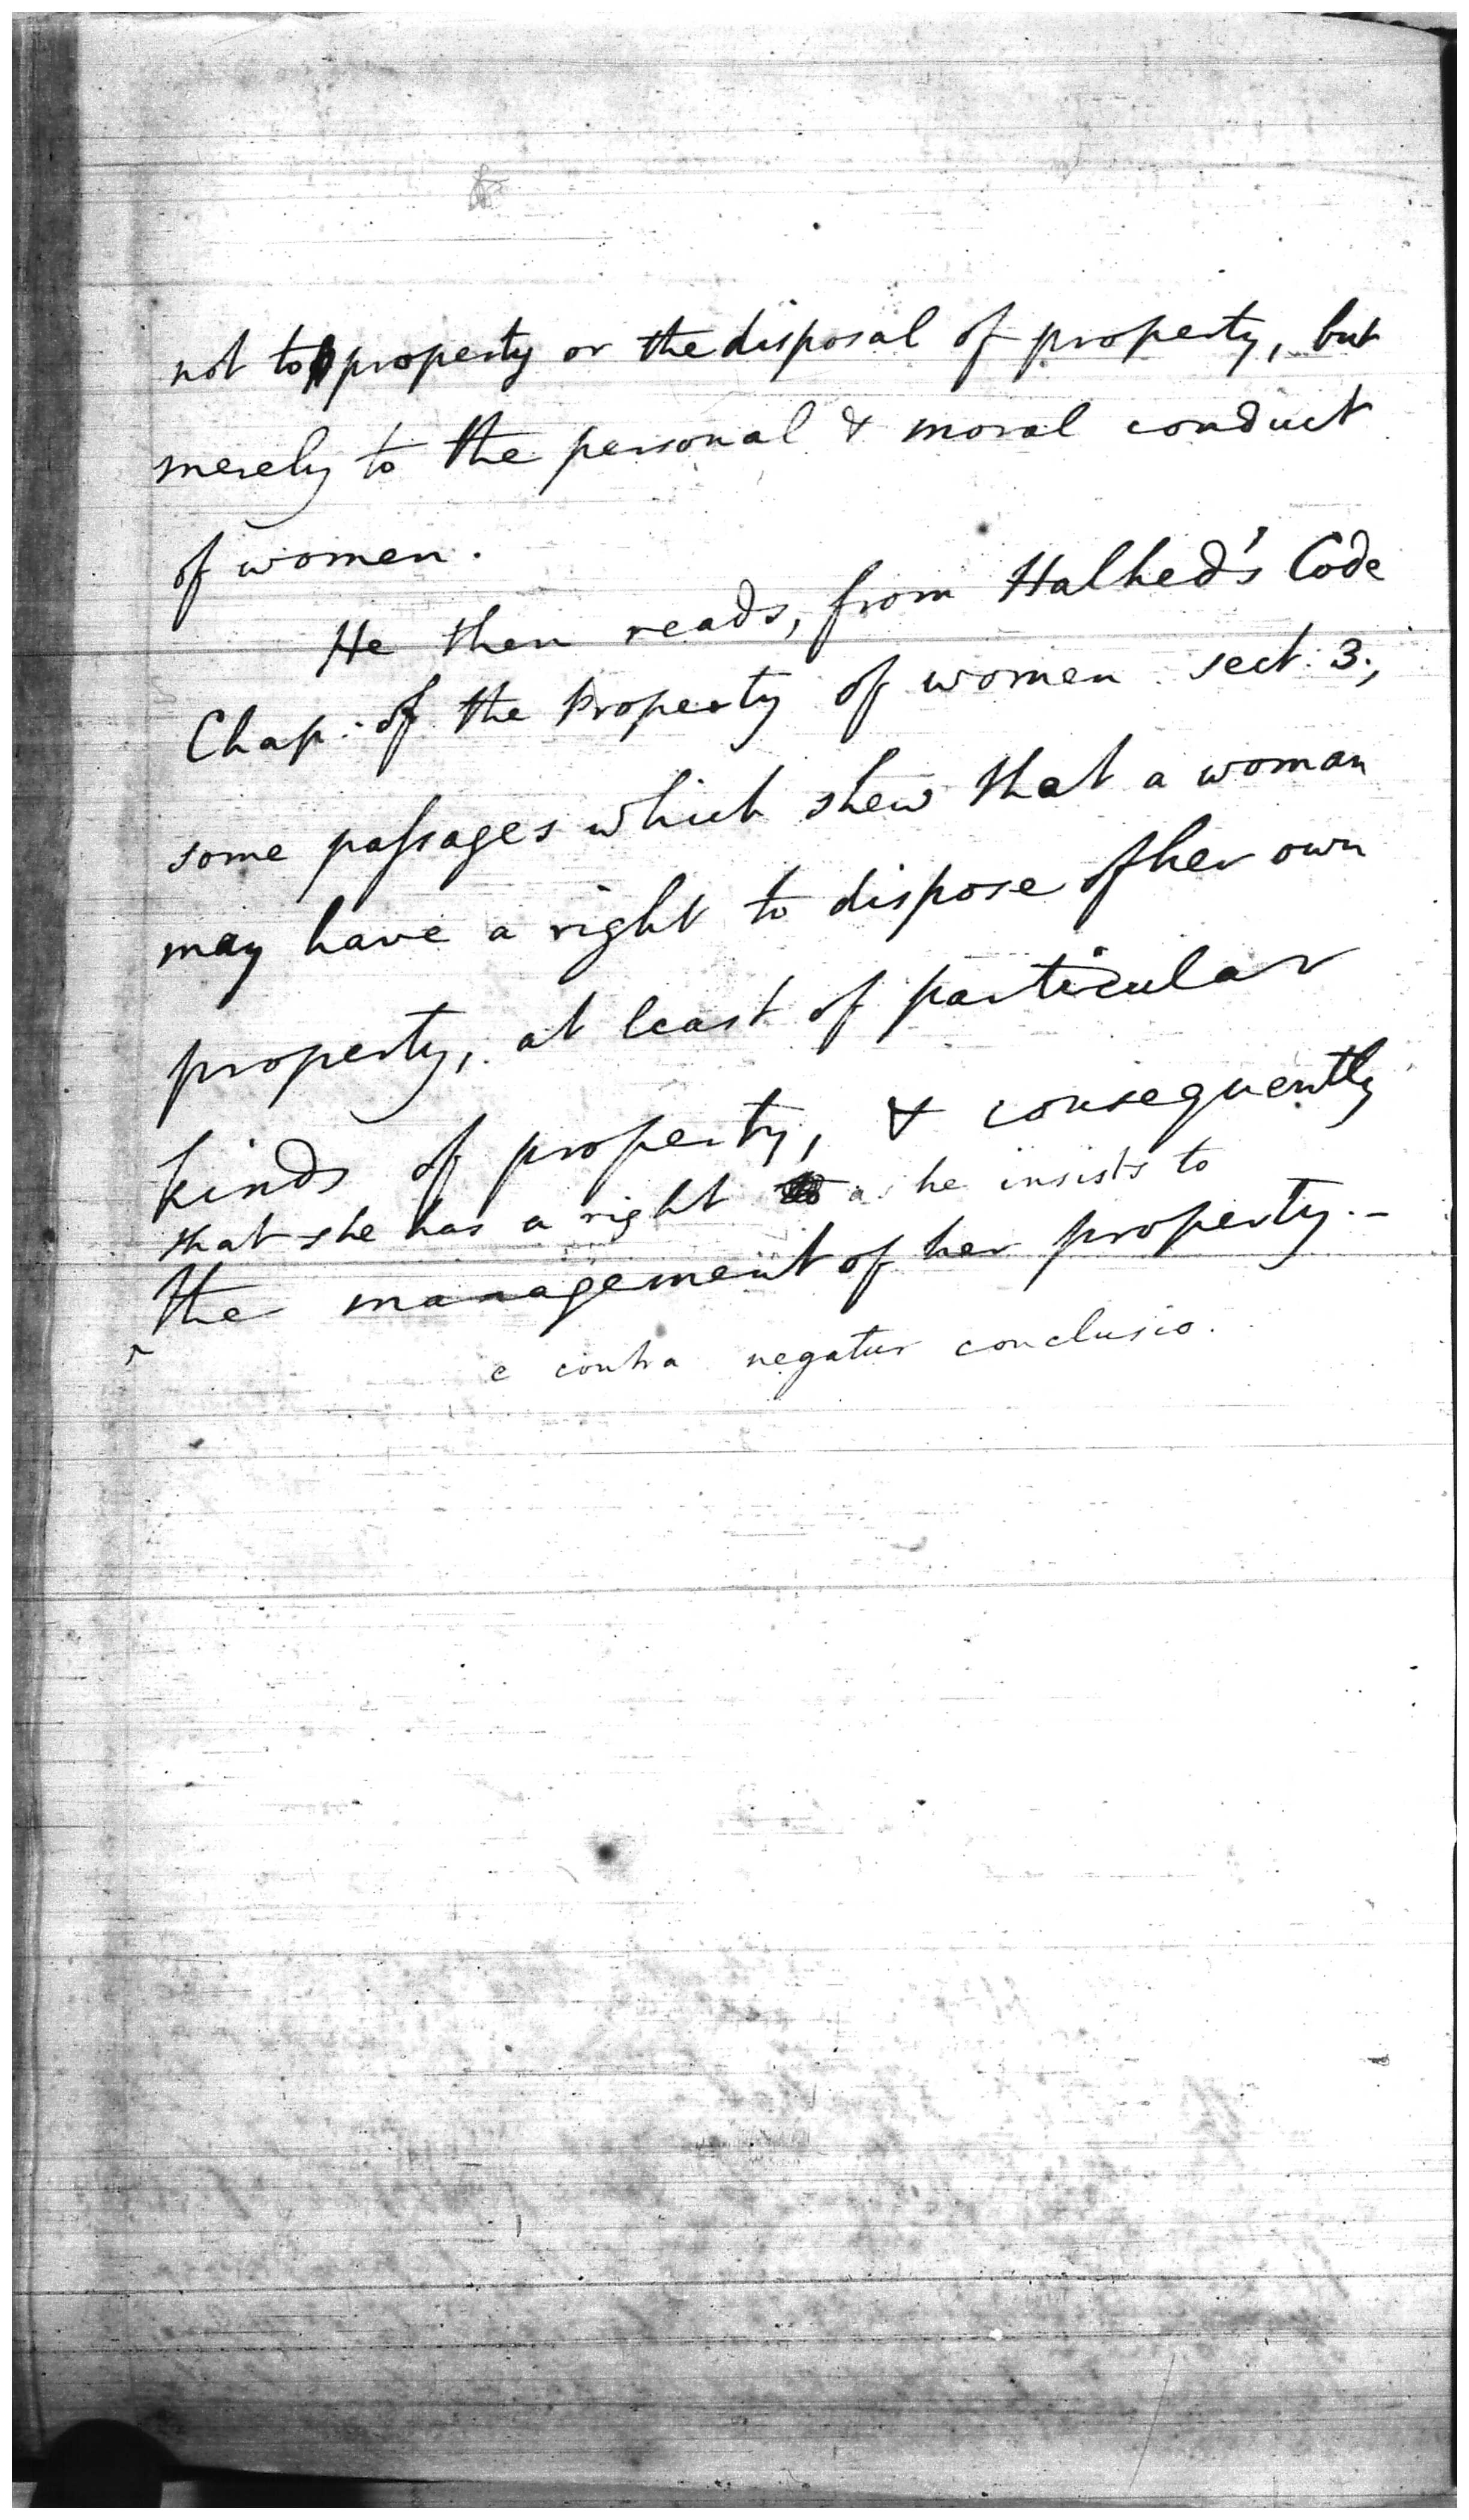 not to property or the disposal of property, but
merely to the personal & moral conduct
of women.
He then reads, from Halhed's Code
Chap: of the Property of women sect: 3.,
some paſsages which shew that a woman
may have a right to dispose of her own
property, at least of particular
kinds of property, & consequently
that she has a right as he insists to
the management of her property.-
e contra negatur conclusio.